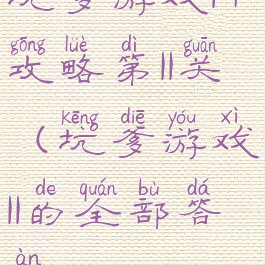 坑爹游戏11
gōng lüè dì guān
攻略第11关
kēng diē yóu xì
(坑爹游戏
de quán bù dá
11的全部答
àn